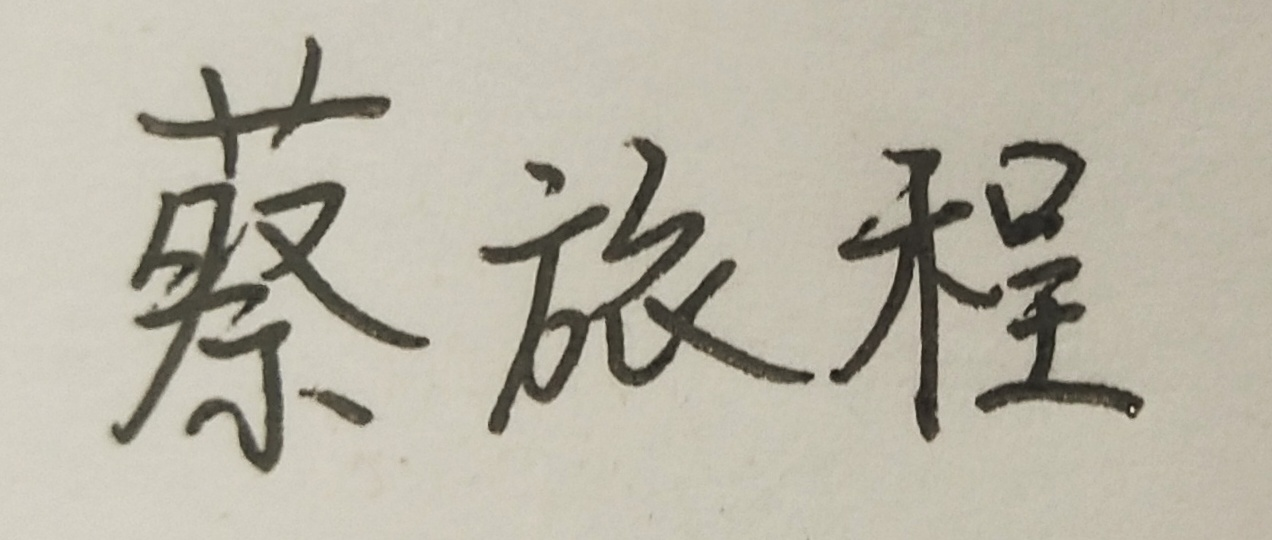 蔡旅程